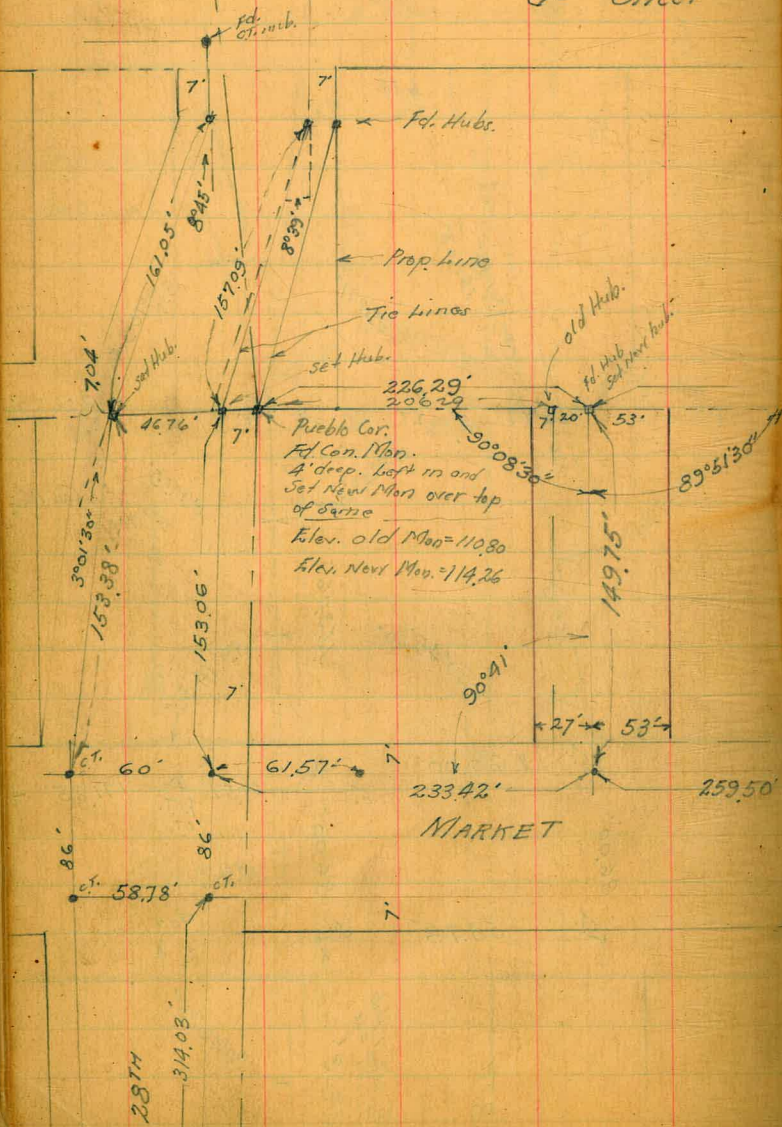 Fd.
7'
7'
Fd. Hubs.
8°45'
8°39'
161.05'
157.09'
Prop. Line
Tie Lines
old Hub.
Fd. Hub
Set New hub.
7.04'
set Hub.
set Hub.
226.29'
206.29
46.76'
7'
7'
20'
53'
Pueblo Cor.
Fd. Con. Mon.
4' deep. Left in and
Set New Mon over top
of same
Elev. old Mon = 110.80
Elev. New Mon. = 114.26
90°08'30"
89°51'30"
3°01'30"
153.38'
153.06'
149.75'
90°41'
7'
27'
53'
C.T.
60'
61.57'
7'
233.42'
259.50'
MARKET
86'
86'
C.T.
58.78'
C.T.
7'
314.03'
28TH